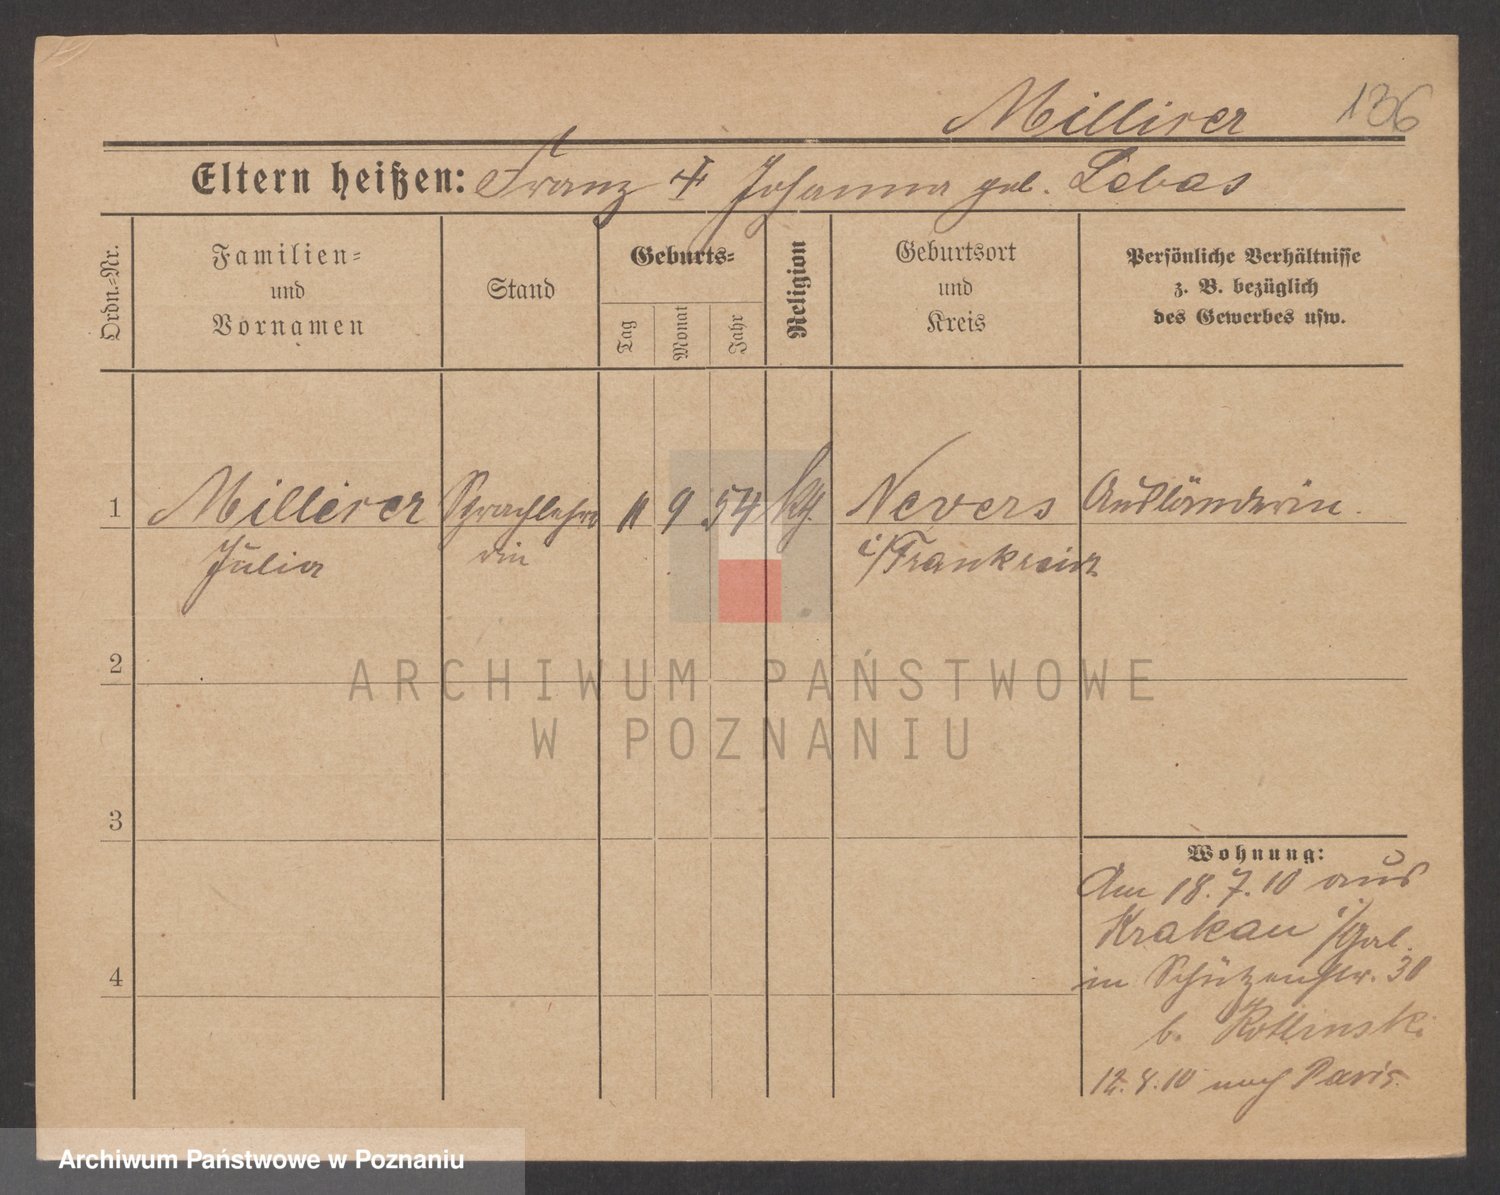 Millirer 136
Eltern heißen: Franz Johanna geb. Lebas
Ordn.-Nr.
Familien=
und
Vornamen
Stand
Geburts=
Tag
Monat
Jahr
Religion
Geburtsort
und
Kreis
Persönliche Verhältnisse
z. B. bezüglich
des Gewerbes usw.
1 Millirer Sprachlehre 11 9 54 ktg. Nevers Ausländerin.
Julia rin i/Frankreich
2
3
4
Wohnung:
Am 18.7.10 aus
Krakau i/Gal.
in Schützenstr. 30
b. Kotlinski
12.8.10 nach Paris.
ARCHIWUM PAŃSTWOWE
W POZNANIU
Archiwum Państwowe w Poznaniu